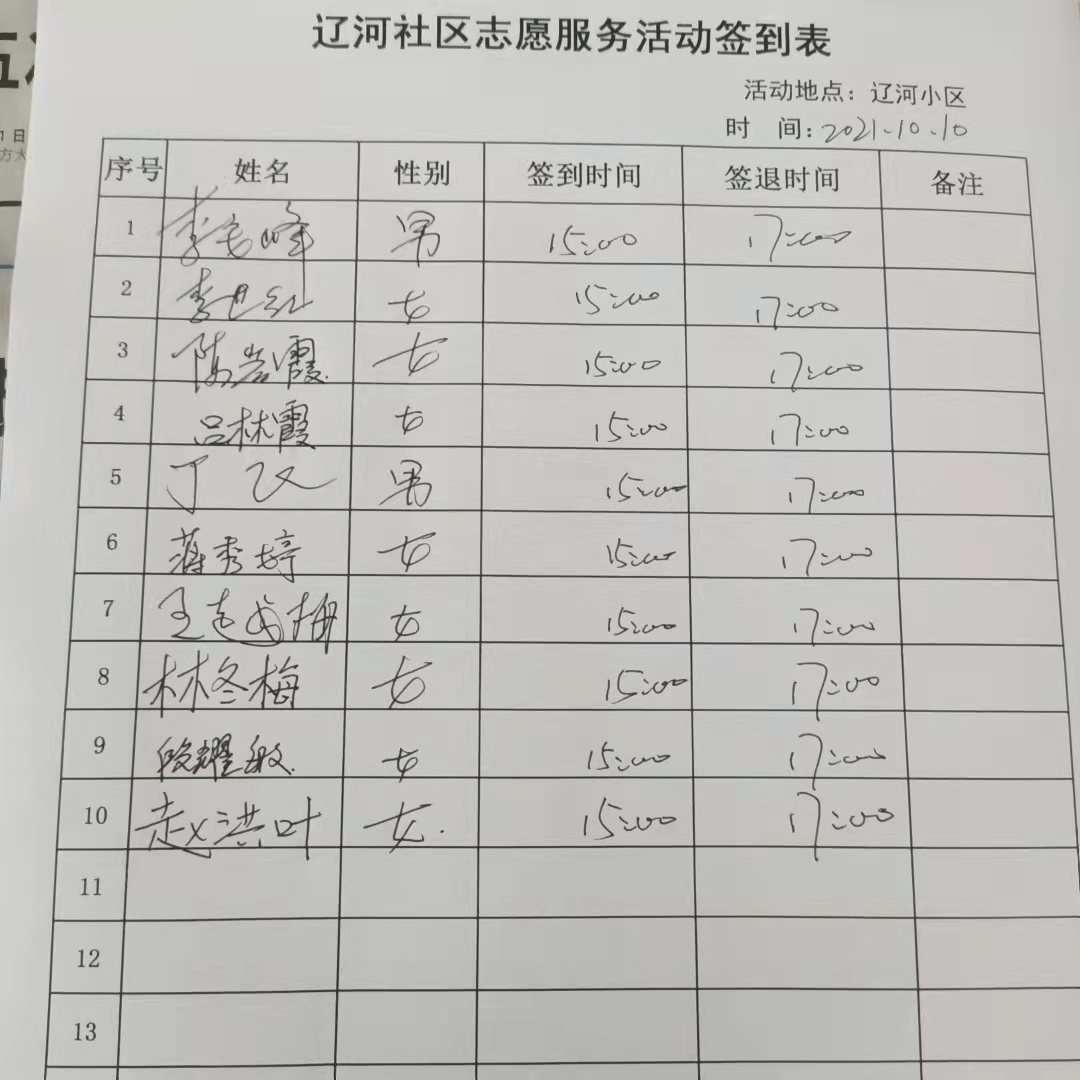 辽河社区志愿服务活动签到表
活动地点：辽河小区
时 间：2021.10.10
序号 姓名 性别 签到时间 签退时间 备注
1 李 峰 男 15:00 17:00
2 李 红 女 15:00 17:00
3 陈岩霞 女 15:00 17:00
4 吕林霞 女 15:00 17:00
5 丁 男 15:00 17:00
6 蒋秀婷 女 15:00 17:00
7 王 梅 女 15:00 17:00
8 林冬梅 女 15:00 17:00
9 段耀敏 女 15:00 17:00
10 赵洪叶 女 15:00 17:00
11
12
13
1日